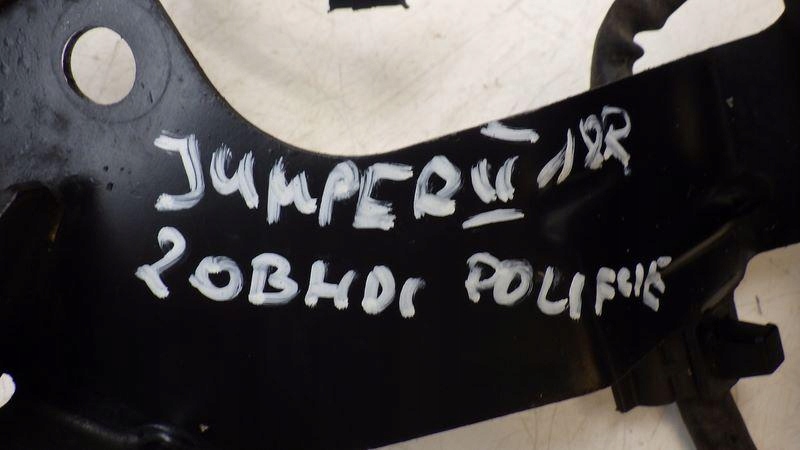 JUMPER II 18R
20BHDI POLIFCIE